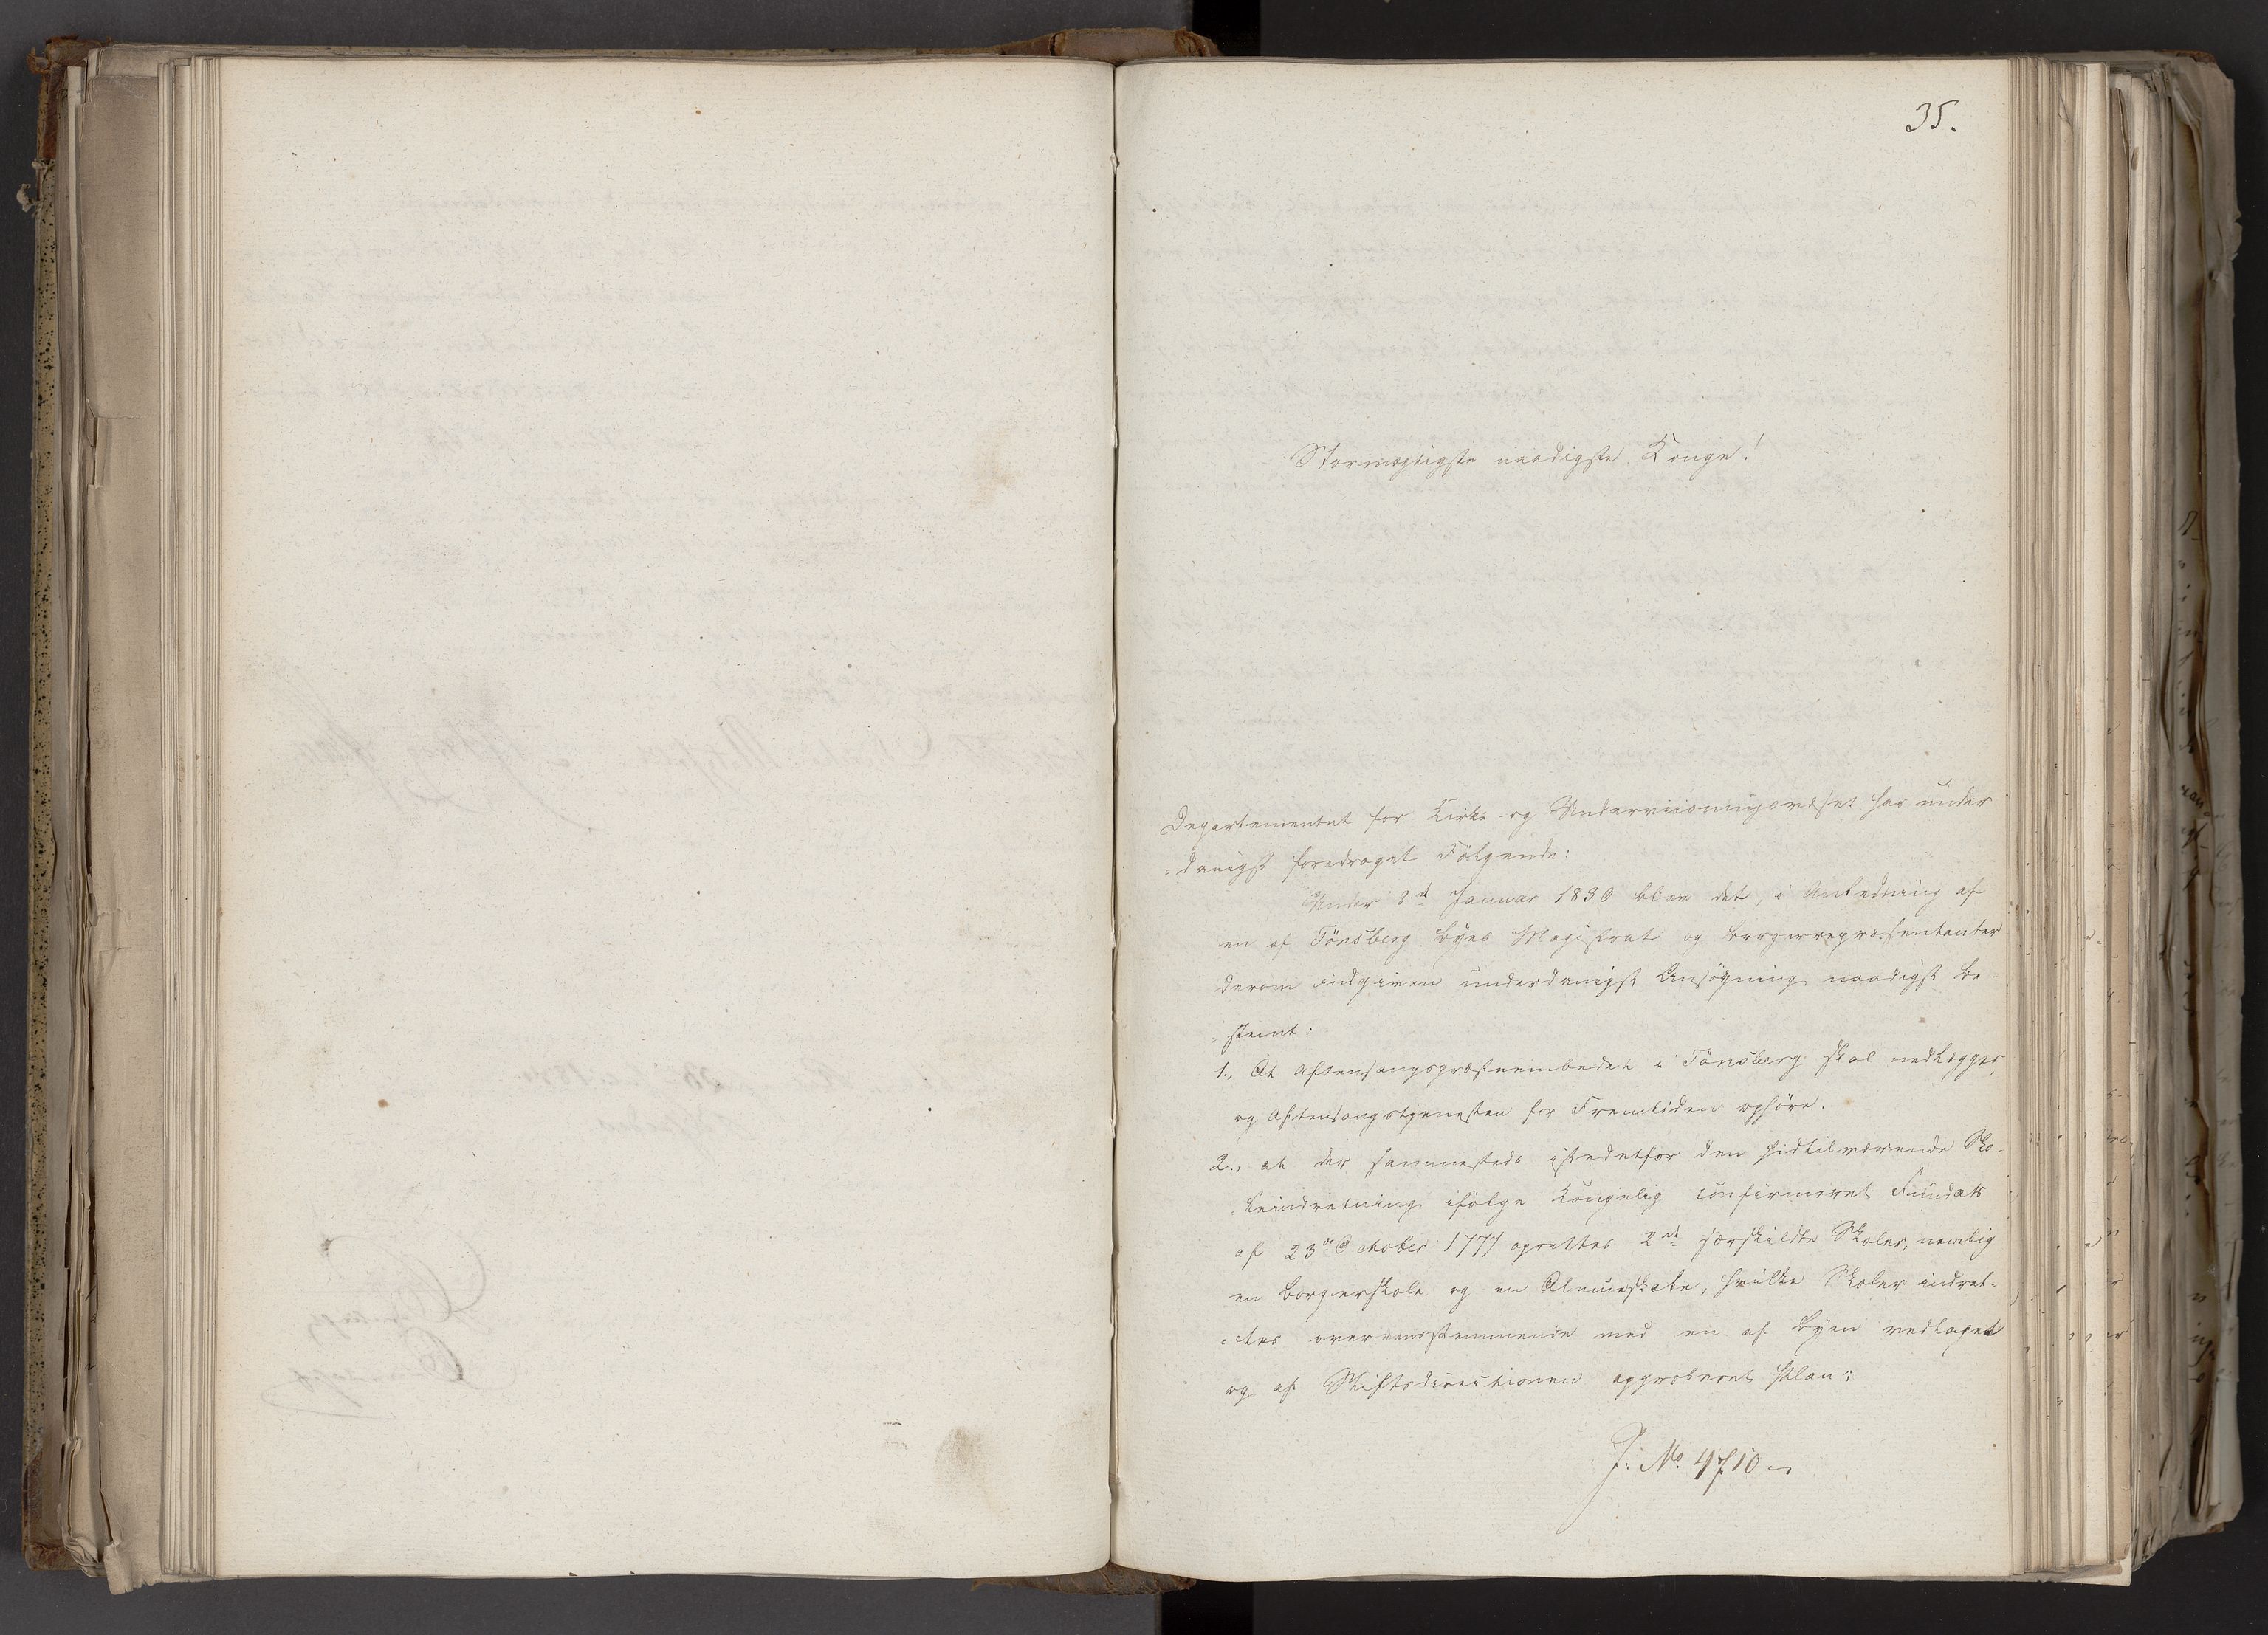 35.
Stormægtigste naadigste Konge!
Departementet for Kirke- og Underviisningsvæsenet har under
=danigst foredraget Følgende:
Under 8de Januar 1830 blev det, i Anledning af
en af Tönsberg Byes Magistrat og Borgerrepræsentanter
derom indgiven underdanigst Ansøgning naadigst be-
=stemt:
1., At Aftensangspræsteembedet i Tönsberg skal nedlægges,
og Aftensangstjenesten for Fremtiden ophøre.
2., at der sammesteds istedetfor den hidtilværende Sko-
=leindretning ifølge Kongelig confirmeret Fundats
af 23de October 1777 oprettes 2de særskildte Skoler, nemlig
en Borgerskole og en Almueskole, hvilke Skoler indret-
=tes overeensstemmende med en af Byen vedtaget
og af Stiftsdirectionen approberet Plan:
J: No. 4710